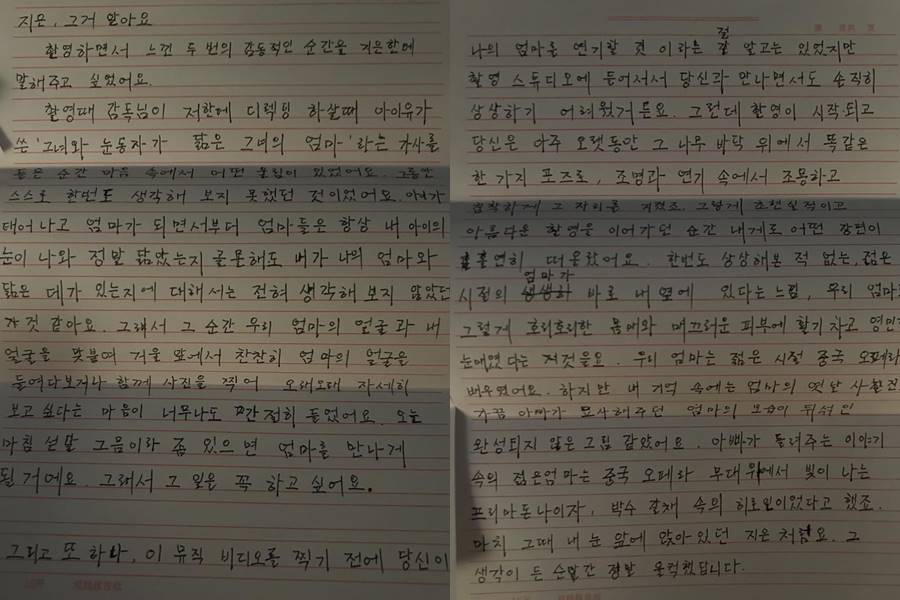 지은, 그거 알아요
촬영하면서 느낀 두 번의 감동적인 순간을 지은한테
말해주고 싶었어요.
촬영때 감독님이 저한테 디렉팅 하실때 아이유가
쓴 '그녀와 눈동자가 닮은 그녀의 엄마'라는 가사를
들은 순간 마음 속에서 어떤 울림이 있었어요. 그동안
스스로 한번도 생각해 보지 못했던 것이었어요. 아이가
태어나고 엄마가 되면서부터 엄마들은 항상 내 아이의
눈이 나와 정말 닮았는지 골몰해도 내가 나의 엄마와
닮은 데가 있는지에 대해서는 전혀 생각해 보지 않았던
것 같아요. 그래서 그 순간 우리 엄마의 얼굴과 내
얼굴을 맞붙여 거울 앞에서 찬찬히 엄마의 얼굴을
들여다보거나 함께 사진을 찍어 오래오래 자세히
보고 싶다는 마음이 너무나도 간절히 들었어요. 오늘
마침 섣달 그믐이라 좀 있으면 엄마를 만나게
될 거예요. 그래서 그 일을 꼭 하고 싶어요.
그리고 또 하나, 이 뮤직 비디오를 찍기 전에 당신이
나의 엄마를 연기할 것 이라는 걸 알고는 있었지만
촬영 스튜디오에 들어서서 당신과 만나면서도 솔직히
상상하기 어려웠거든요. 그런데 촬영이 시작되고
당신은 아주 오랫동안 그 나무 바닥 위에서 똑같은
한 가지 포즈로, 조명과 연기 속에서 조용하고
침착하게 그 자리를 지켰죠. 그렇게 초현실적이고
아름다운 촬영을 이어가던 순간 내게로 어떤 장면이
홀연히 떠올랐어요. 한번도 상상해본 적 없는, 젊은
시절의 엄마가 바로 내 옆에 있다는 느낌, 우리 엄마
그렇게 호리호리한 몸매와 매끄러운 피부에 활기차고 영민
눈매였다는 저것을요. 우리 엄마는 젊은 시절 중국 오페라
배우였어요. 하지만 내 기억 속에는 엄마의 옛날 사진
가끔 아빠가 묘사해주던 엄마의 모습이 뒤섞인
완성되지 않은 그림 같았어요. 아빠가 들려주는 이야기
속의 젊은엄마는 중국 오페라 무대 위에서 빛이 나는
프리마돈나이자, 박수 갈채 속의 히로인이었다고 했죠.
마치 그때 내 눈 앞에 앉아있던 지은 처럼요. 그
생각이 든 순간 정말 울컥했답니다.